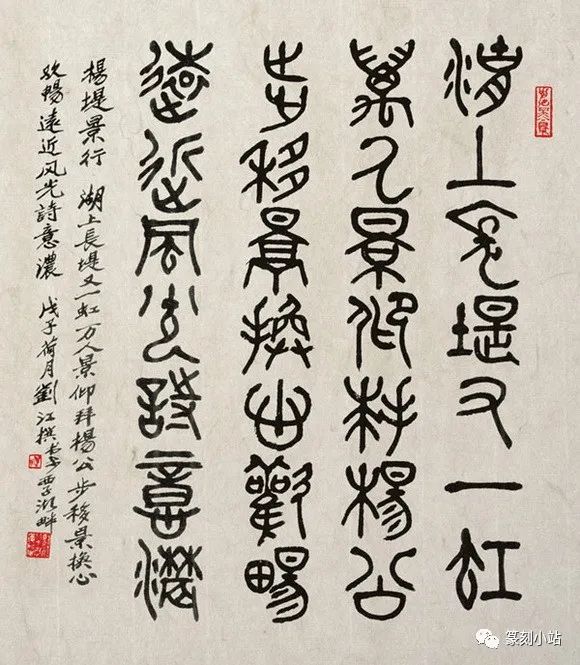 湖上長堤又一虹
萬人景仰拜楊公
步移景換心歡暢
遠近風光詩意濃
楊堤景行 湖上長堤又一虹万人景仰拜楊公步移景換心
欢暢遠近风光詩意濃 戊子荷月劉江撰书于西子湖畔
篆刻小站